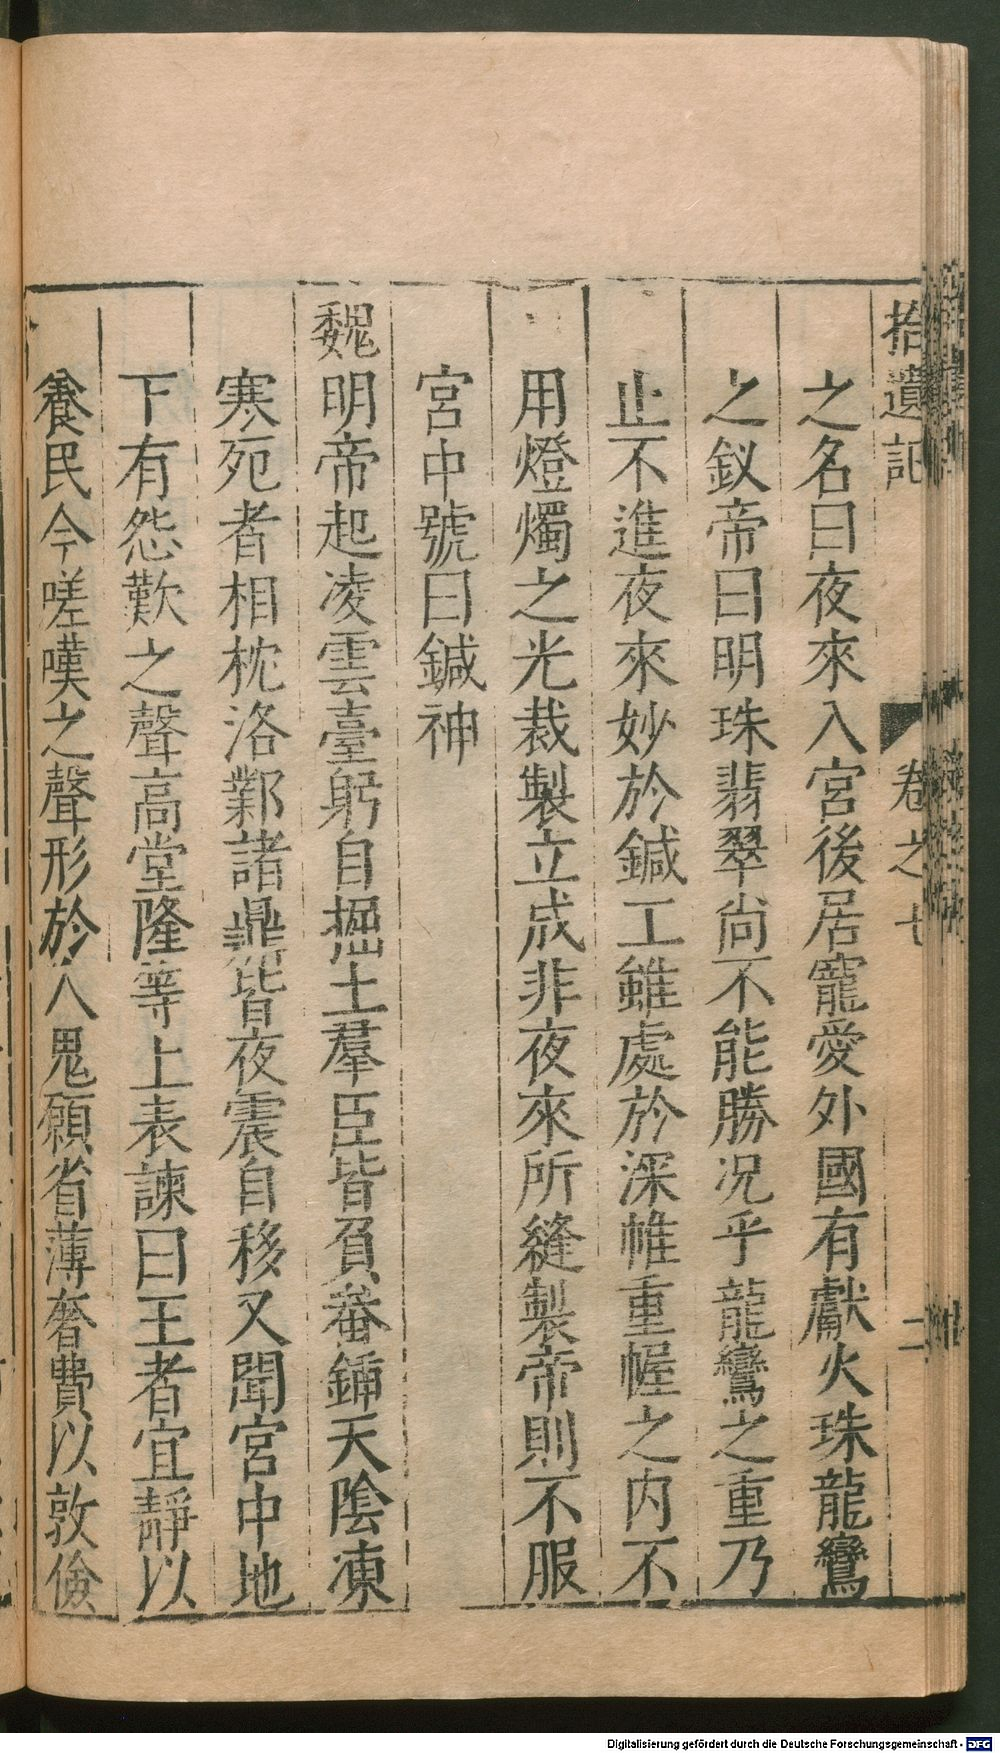 拾遺記
卷之七
二
之名曰夜來入宮後居寵愛外國有獻火珠龍鸞
之釵帝曰明珠翡翠尚不能勝况乎龍鸞之重乃
止不進夜來妙於鍼工雖處於深帷重幄之内不
用燈燭之光裁製立成非夜來所縫製帝則不服
宮中號曰鍼神
魏明帝起凌雲臺躬自掘土羣臣皆負畚鍤天陰凍
寒死者相枕洛鄴諸鼎皆夜震自移又聞宮中地
下有怨歎之聲高堂隆等上表諫曰王者宜靜以
養民今嗟嘆之聲形於人鬼願省薄奢費以敦儉
Digitalisierung gefördert durch die Deutsche Forschungsgemeinschaft - DFG